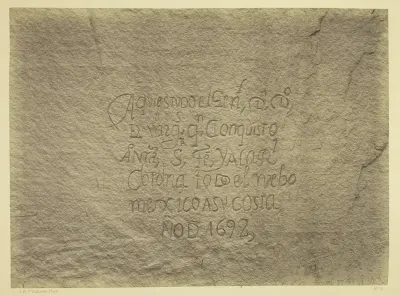 Aqui estubo el Genl. Dn. Do.
D Vargs. qn. Conquisto
A ntra. S. Fe, Y a la Rl.
Corona todo el nuebo
mexico a su costa
AÑO D 1692,